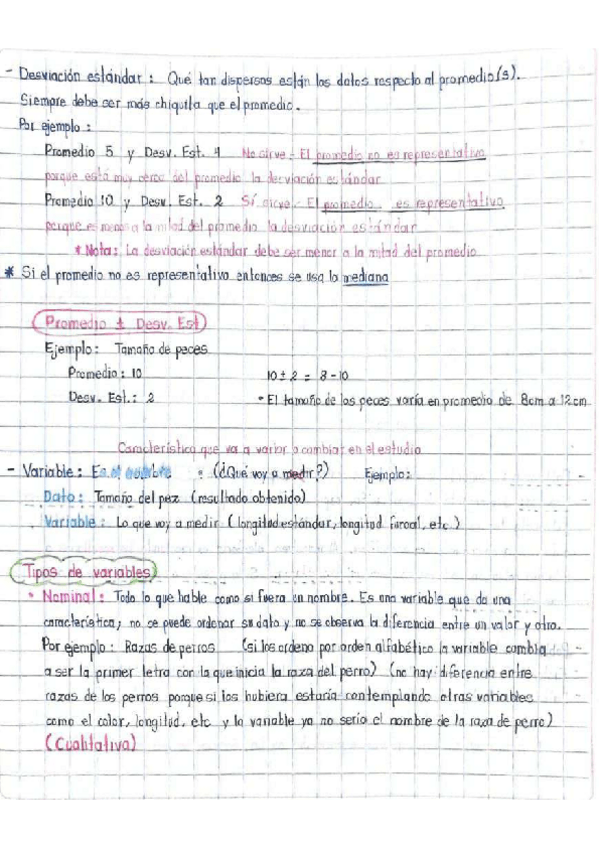 - Desviación estándar : Qué tan dispersos están los datos respecto al promedio(s).
Siempre debe ser más chiquita que el promedio.
Por ejemplo :
Promedio 5 y Desv. Est. 4 No sirve - El promedio no es representativo
porque está muy cerca del promedio la desviación estándar
Promedio 10 y Desv. Est. 2 Sí sirve - El promedio es representativo
porque es menor a la mitad del promedio la desviación estándar
* Nota: La desviación estándar debe ser menor a la mitad del promedio
* Si el promedio no es representativo entonces se usa la mediana
Promedio ± Desv. Est
Ejemplo: Tamaño de peces
Promedio : 10 10 ± 2 = 8 - 10
Desv. Est.: 2 - El tamaño de los peces varía en promedio de 8cm a 12cm
Característica que va a variar o cambiar en el estudio
- Variable : Es el : (¿Qué voy a medir?) Ejemplo:
Dato : Tamaño del pez (resultado obtenido)
Variable : Lo que voy a medir (longitud estándar, longitud furcal, etc.)
Tipos de variables
• Nominal : Todo lo que hable como si fuera un nombre. Es una variable que da una
característica, no se puede ordenar su dato y no se observa la diferencia entre un valor y otro.
Por ejemplo : Razas de perros (si los ordeno por orden alfabético la variable cambia
a ser la primer letra con la que inicia la raza del perro) (no hay diferencia entre
razas de los perros porque si los hubiera estaría contemplando otras variables
como el color, longitud, etc y la variable ya no sería el nombre de la raza de perro)
(Cualitativa)